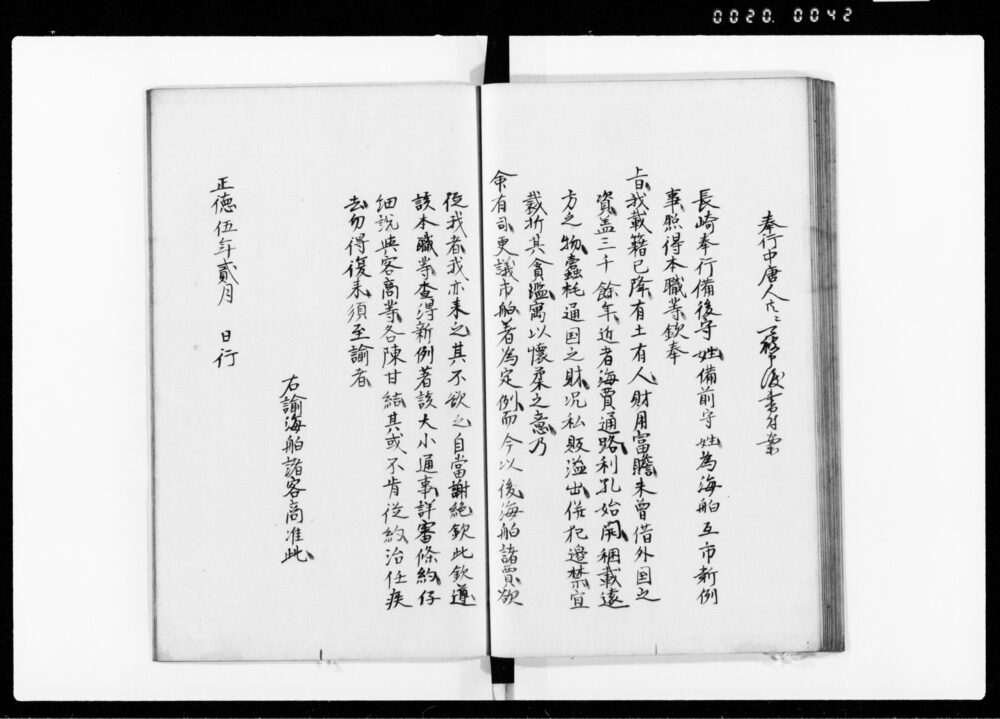 0020. 0042
奉行中唐人に 書付案
長崎奉行備後守姓備前守姓為海舶互市新例
事照得本職等欽奉
上旨我載籍已降有土有人財用富贍未曾借外国之
資盖三千餘年近者海賈通路利孔始開稇載遠
方之物蠹耗通国之財况私販溢出併犯邊禁宜
裁折其貪濫寓以懐柔之意乃
命有司更議市舶者為定例而今以後海舶諸賈欲
従我者我亦来之其不欲之自當謝絶欽此欽遵
該本職等査得新例著該大小通事詳審條約仔
細説與客商等各陳甘結其或不肯従約治任疾
去勿得復来須至諭者
右諭海舶諸客商准此
正徳伍年貳月 日行